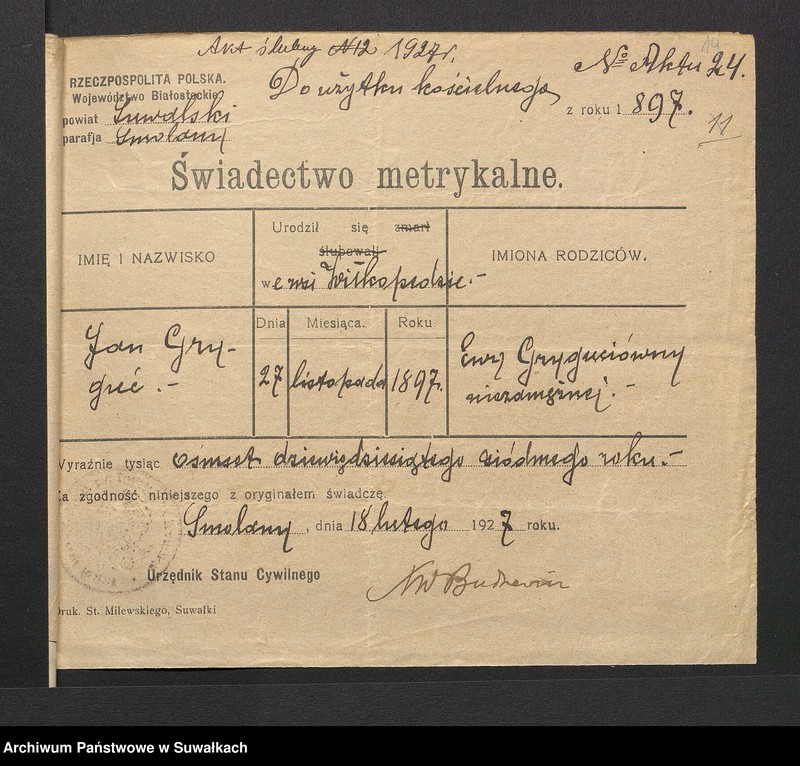 Akt ślubny N12 1927r.
14
RZECZPOSPOLITA POLSKA.
Województwo Białostockie
Do użytku kościelnego
№ Aktu 24.
powiat Suwalski
z roku 1897.
parafja Smolany
11
Świadectwo metrykalne.
IMIĘ I NAZWISKO
Urodził się zmarł
ślubowali
we wsi Wiłkopedzie.-
IMIONA RODZICÓW.
Dnia Miesiąca. Roku
Jan Gry-
guć.-
27 listopada 1897r.
Ewy Gryguciówny
niezamężnej.-
Wyraźnie tysiąc ośmset dziewiędziesiątego siódmego roku.-
Za zgodność niniejszego z oryginałem świadczę.
Smolany, dnia 18 lutego 1927 roku.
Urzędnik Stanu Cywilnego
Druk. St. Milewskiego, Suwałki
Archiwum Państwowe w Suwałkach